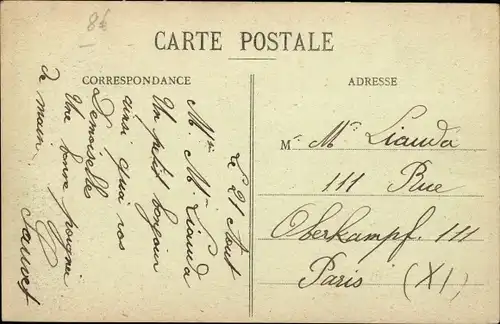 8€
CARTE POSTALE
CORRESPONDANCE
ADRESSE
Le 21 Aout
Mr Mme Lianda
Un petit bonjour
ainsi qua vos
Demoiselles
Une bonne poignée
de main
Sauvet
M Mr Lianda
111 Rue
Oberkampf. 111
Paris (XI)